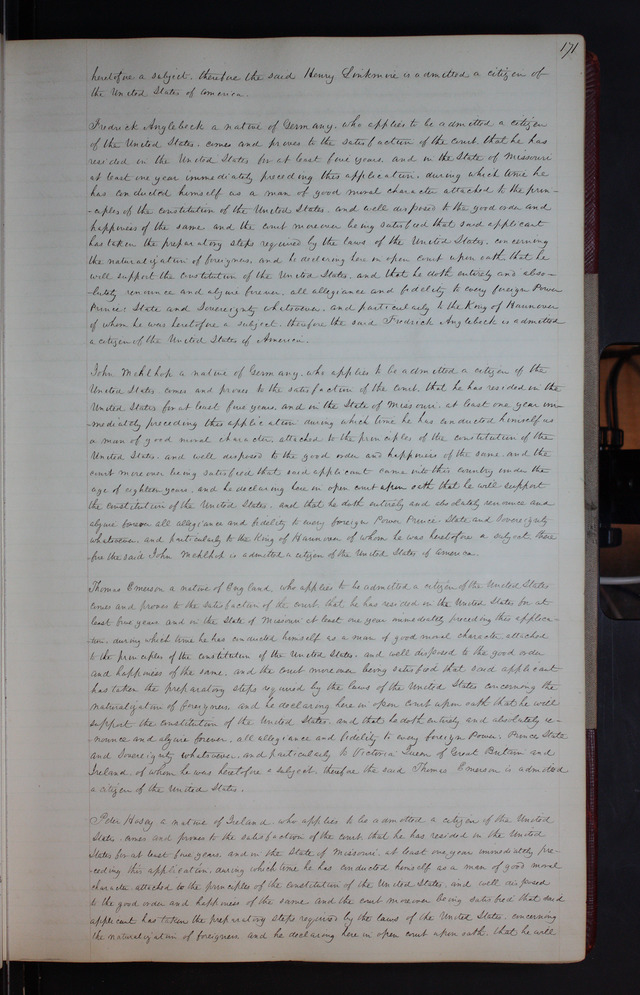 171
heretofore a subject. therefore the said Henry Linkmire is admitted a citizen of
the United States of America.
Fredrick Anglebeck a native of Germany. who applies to be admitted a citizen
of the United States. comes and proves to the satisfaction of the court that he has
resided in the United States for at least five years and in the State of Missouri
at least one year immediately preceding this application. during which time he
has conducted himself as a man of good moral character attached to the prin-
-ciples of the constitution of the United States. and well disposed to the good order and
happiness of the same and the court moreover being satisfied that said applicant
has taken the preparatory steps required by the laws of the United States. concerning
the naturalization of foreigners. and he declaring here in open court upon oath that he
will support the Constitution of the United States. and that he doth entirely and abso-
-lutely renounce and abjure forever, all allegiance and fidelity to every foreign Power
Prince, State and Sovereignty whatsoever. and particularly to the King of Hannover
of whom he was heretofore a subject. therefore the said Fredrick Anglebeck is admitted
a citizen of the United States of America.
John Mehlhop a native of Germany. who applies to be admitted a citizen of the
United States comes and proves to the satisfaction of the court. that he has resided in the
United States for at least five years. and in the State of Missouri. at least one year im-
mediately preceding this application during which time he has conducted himself as
a man of good moral character. attached to the principles of the constitution of the
United States. and well disposed to the good order and happiness of the same. and the
court moreover being satisfied that said applicant came into this country under the
age of eighteen years. and he declaring here in open court upon oath that he will support
the constitution of the United States. and that he doth entirely and absolutely renounce and
abjure forever all allegiance and fidelity to every foreign Power Prince. State and Sovereignty
whatsoever. and particularly to the King of Hannover of whom he was heretofore a subject. there
fore the said John Mehlhop is admitted a citizen of the United States of America.
Thomas Emerson a native of England. who applies to be admitted a citizen of the United States
comes and proves to the satisfaction of the court. that he has resided in the United States for at
least five years and in the State of Missouri at least one year immediately preceding this applica-
tion. during which time he has conducted himself as a man of good moral character attached
to the principles of the constitution of the United States. and well disposed to the good order
and happiness of the same. and the court moreover being satisfied that said applicant
has taken the preparatory steps required by the laws of the United States concerning the
naturalization of foreigners and he declaring here in open court upon oath that he will
support the constitution of the United States. and that he doth entirely and absolutely re-
nounce and abjure forever. all allegiance and fidelity to every foreign Power. Prince, State
and Sovereignty whatsoever. and particularly to Victoria Queen of Great Britain and
Ireland. of whom he was heretofore a subject. therefore the said Thomas Emerson is admitted
a citizen of the United States.
Peter a native of Ireland. who applies to be admitted a citizen of the United
States. comes and proves to the satisfaction of the court that he has resided in the United
States for at least five years. and in the State of Missouri. at least one year immediately pre-
ceding this application. during which time he has conducted himself as a man of good moral
character. attached to the principles of the constitution of the United States. and well disposed
to the good order and happiness of the same. and the court moreover being satisfied that said
applicant has taken the preparatory steps required by the laws of the United States. concerning
the naturalization of foreigners and he declaring here in open court upon oath. that he will